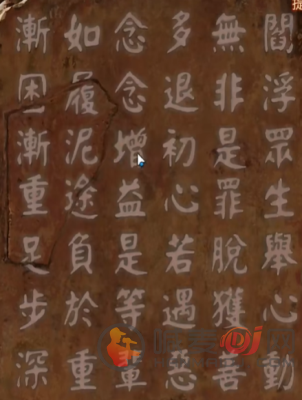 閻浮眾生舉心動
無非是罪脫獲善
多退初心若遇惡
念念增益是等輩
如履泥途負於重
漸困漸重足步深